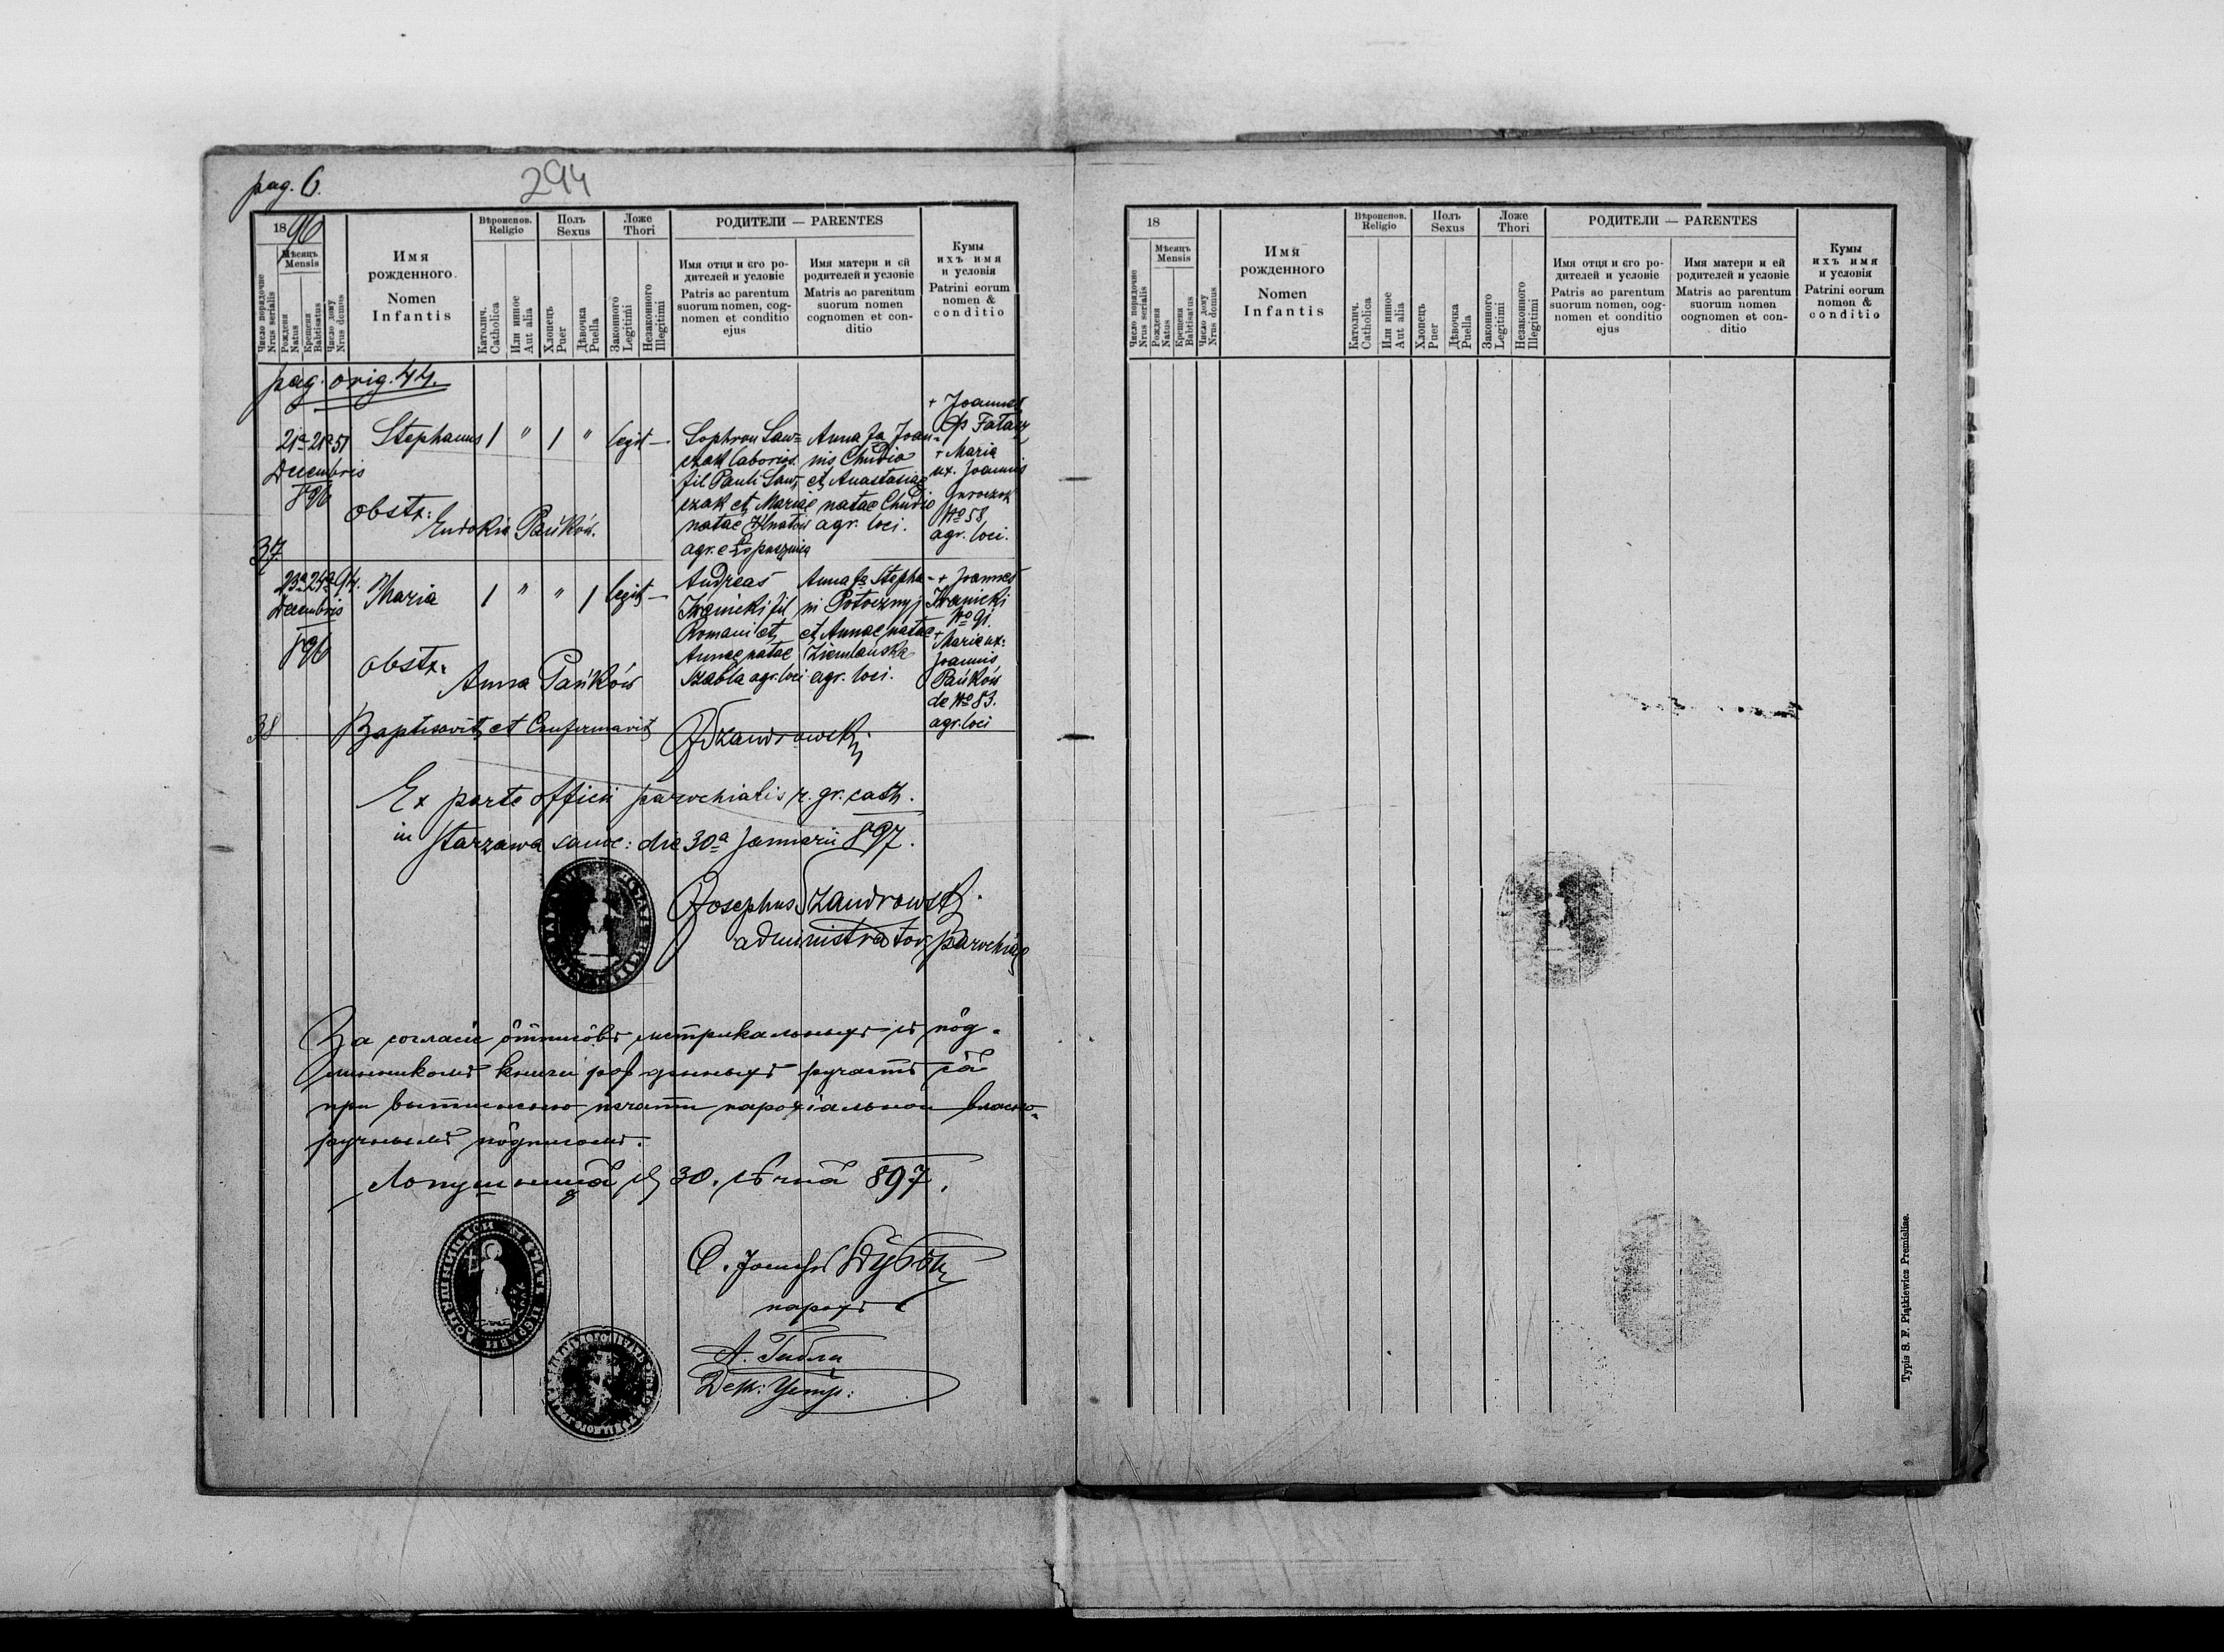 pag. 6.
294
1896
Мѣсяцъ
Mensis
Число порядочне
Nrus serialis
Рождения
Natus
Крещения
Babtisatus
Число дому
Nrus domus
Имя
рожденного.
Nomen
Infantis
Вѣроиспов.
Religio
Католич.
Catholica
Или инное
Aut alia
Полъ
Sexus
Хлопець
Puer
Дѣвочка
Puella
Ложе
Thori
Законного
Legitimi
Незаконного
Illegitimi
РОДИТЕЛИ — PARENTES
Имя отця и єго ро-
дителей и условіе
Patris ac parentum
suorum nomen, cog-
nomen et conditio
ejus
Имя матери и єй
родителей и условіе
Matris ac parentum
suorum nomen
cognomen et con-
ditio
Кумы
ихъ имя
и условія
Patrini eorum
nomen &
conditio
pag. orig. 44.
21ª 21ª 51
Decembris
896
Stephanus 1 " 1 " legit —
obstr:
Eudokia Pańków.
37
Sophron Law=
czak laborios.
fil Pauli Law=
czak et Mariae
natae Hnatów
agr. e Łopusznica
Anna fa Joan-
nis Chudio
et Anastasiae
natae Chudio
agr. loci.
+ Joannes
Fatacz
+ Maria
ux. Joannis
No 58
agr. loci.
23ª 24ª 94.
Decembris
896
Maria 1 " " 1 legit —
obstr.
Anna Pańków
38
Andreas
Iwanicki fil
Romani et
Annae natae
Szabla agr. loci
Anna fa Stepha-
ni Potoczny
et Annae natae
Ziemlanska
agr. loci.
+ Joannes
Iwanicki
No 91.
+ Maria ux:
Joannis
Pańków
de No 83.
agr. loci
Baptisavit et Confirmavit
JSzandrowski
Ex parte officii parochialis r. gr. cath.
in Starzawa sanoc: die 30ª Januarii 897.
Josephus Szandrowski.
administrator parochiae
За согласіе ôтписôвъ метрикальныхъ съ пôд-
линникомъ книги рожденныхъ ручаетъ ся
при вытисненю печати парохіальнои власно-
ручнымъ пôдписомъ.
Лопушница, д 30. Сѣчня 897.
О. Іосифъ
парохъ
Дек: Устр:
18
Мѣсяцъ
Mensis
Число порядочне
Nrus serialis
Рождения
Natus
Крещения
Babtisatus
Число дому
Nrus domus
Имя
рожденного
Nomen
Infantis
Вѣроиспов.
Religio
Католич.
Catholica
Или инное
Aut alia
Полъ
Sexus
Хлопець
Puer
Дѣвочка
Puella
Ложе
Thori
Законного
Legitimi
Незаконного
Illegitimi
РОДИТЕЛИ — PARENTES
Имя отця и єго ро-
дителей и условіе
Patris ac parentum
suorum nomen, cog-
nomen et conditio
ejus
Имя матери и єй
родителей и условіе
Matris ac parentum
suorum nomen
cognomen et con-
ditio
Кумы
ихъ имя
и условія
Patrini eorum
nomen &
conditio
Typis S. F. Piątkiewicz Premisliae.